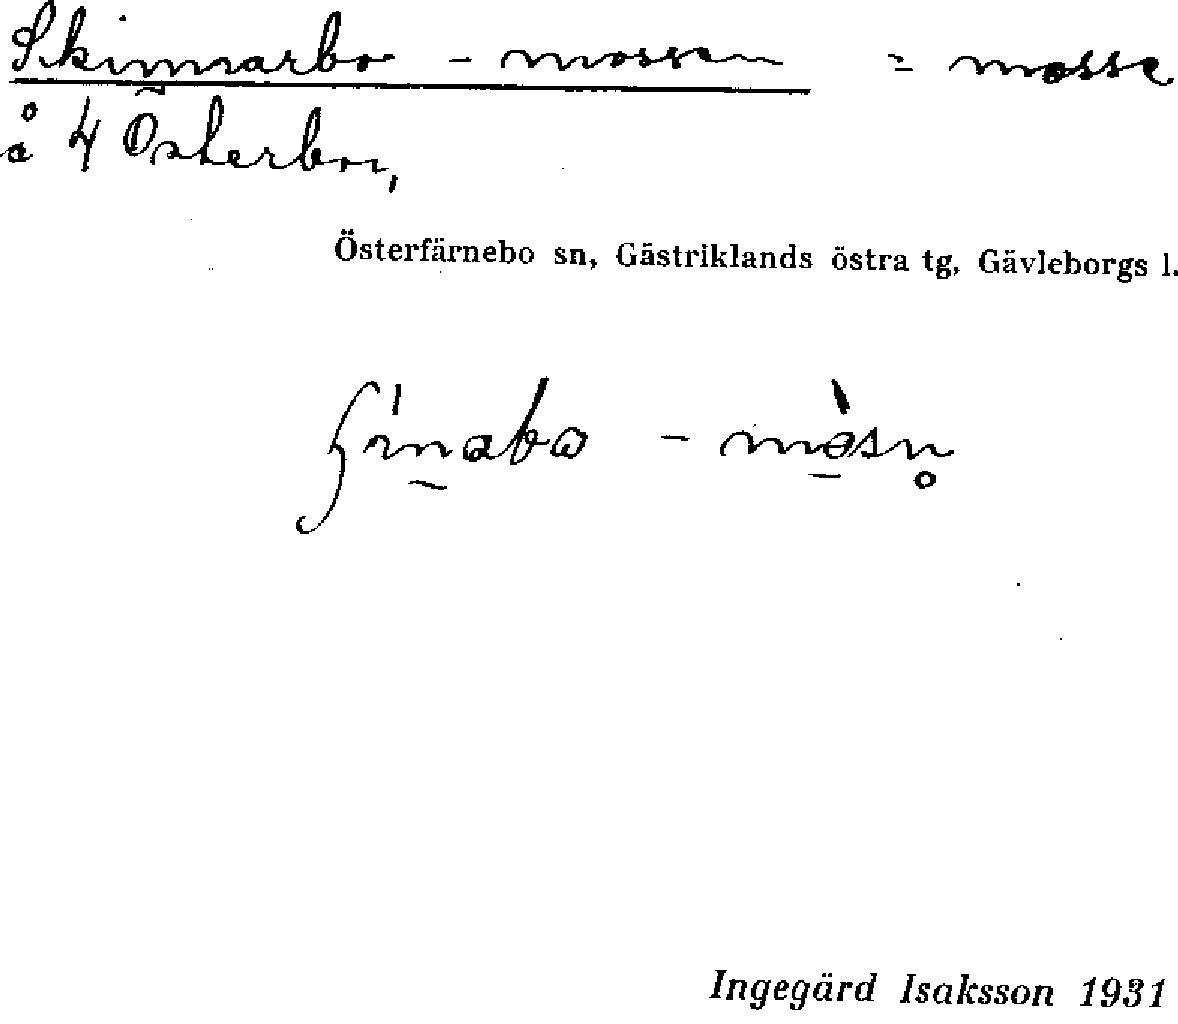 Skinnarbo - mossen = mosse
å 4 Österbor,
Österfärnebo sn, Gästriklands östra tg, Gävleborgs l.
Ingegärd Isaksson 1931